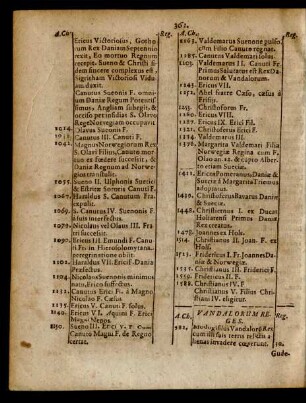 362.
A.Ch. Reg.
Ericus Victoriosus, Gothorum
Rex Daniam Septennio
rexit, Eo mortuo Regnum
recepit. Sueno & Christi fidem
sincere complexus est,
Sigritham Victoriosi Viduam
duxit.
Canutus Suenonis F. omnium
Daniæ Regum Potentissimus,
Angliam subegit, &
occiso perfidia S. Olavo
Rege Norwegiam occupavit
1014. Olavus Suenonis F.
Canuti F.
1042. Magnus Norwegiorum Rex
S. Olavi Filius, Canuto mortuo
ex fœdere successit, &
Dania Regnum ad Norwegios
transtulit.
1055. Sueno II. Ulphonis Suetici
& Esthritæ Sororis Canuti F.
1067. Haraldus S. Canutum Fra.
expulit.
1069. S. Canutus IV. Suenonis F.
huic interfecto
1079. Nicolaus vel Olaus III. Fratri
successit.
1090. Ericus III Emundi F. Canuti
Fr. in Hierosolymitana
peregrinatione obiit.
1102. Haraldus VII. Ericis Daniæ
Præfectus.
1104. Nicolaus Suenonis minimus
natu, Frico suffectus.
1132. Canutus Erici F. à Magno
Nicolao F. Cæsus
1135. Ericus V. Canuti F. solus.
1140. Ericus VI. Aquini F. Erici
Magni Nepos.
1150. Sueno III. Erici V. F. Cum
Canuto Magni F. de Regno
certat.
A.Ch. Reg.
1163. Valdemarus Suenone pulso,
cum filio Canuto regnat.
1185. Canutus Valdemari solus.
1203. Valdemarus II. Canuti Fr.
Primus Salutatus est Rex Danorum
& Vandalorum.
1243. Ericus VII.
1251. Abel fratre Cæso, cæsus à
Frisijs.
1253. Christoforus Fr.
1260. Ericus VIII.
1287. Ericus IX. Erici Fil.
1321. Christoferus Erici F.
1334. Valdemarus III.
1376. Margarita Valdemari Filia
Norwegiæ Regina cum F.
Olao an. 22. & capto Alberto
etiam Sueciæ.
1411. Ericus Pomeranus Daniæ &
Sueciæ à Margarita Trimus
adoptatus.
1439. Christoferus Bavarus Daniæ
& Sueciæ.
1448. Christiernus I. ex Ducat
Holsatorum Primus Daniæ
Rex creatus.
1478. Ioannes ex Hols.
1514. Christianus II. Joan. F. ex
Hols.
1523. Fridericus I. Fr. Joannes Daniæ
& Norwegiæ.
1535. Christianus III. Friderici F.
1559. Fridericus II. F.
1588. Christianus IV. F.
Christianus V. Filius Christiani
IV. eligitur.
A.Ch. VANDALORUM REGES. Reg.
382. Modigisilus Vandalorū Rex
cum suis satis refertis
latius invadere coeperunt. 18.
Gode-